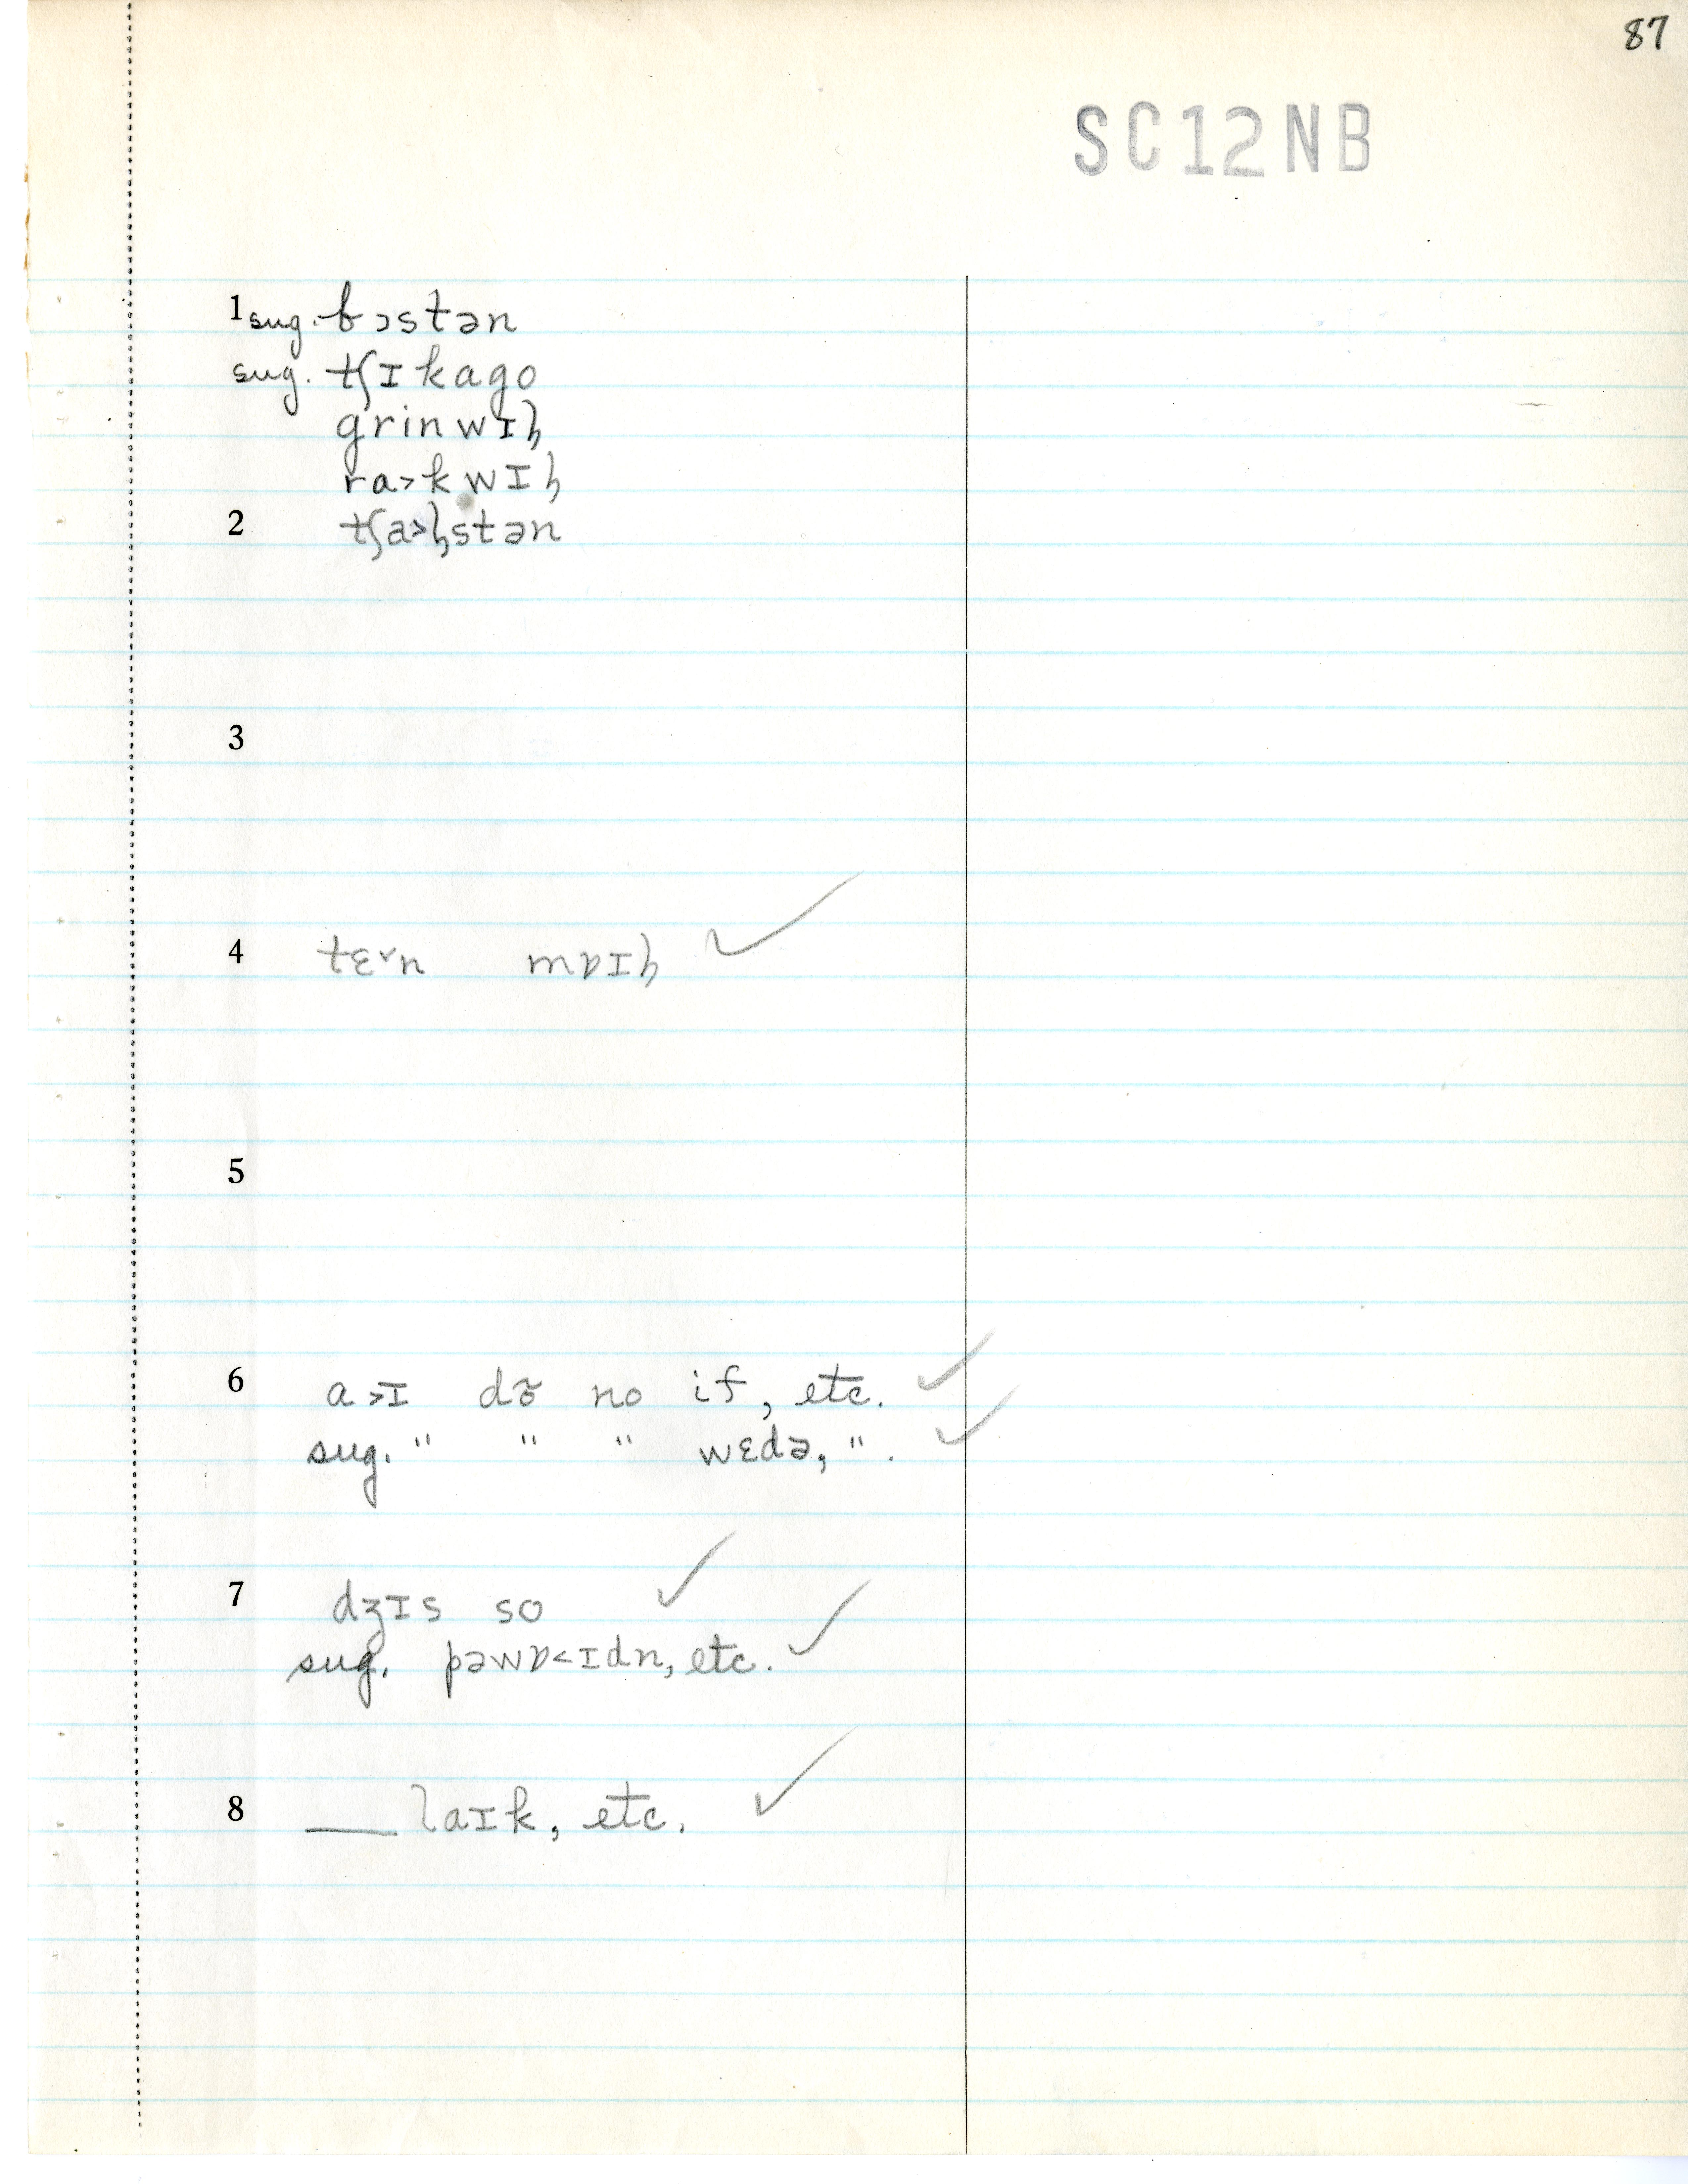 87
SC12NB
1 sug. bɔstən
sug. tʃɪkago
grinwɪꞎ
ra>kwɪꞎ
2 tʃa>ꞎstən
3
4 tɛvn mɒɪꞎ ✓
5
6 a>ɪ no if, etc. ✓
sug. " " " wɛdə, ". ✓
7 dʒɪs so ✓
sug. pəwɒ<ɪdn, etc. ✓
8 ___ laɪk, etc. ✓